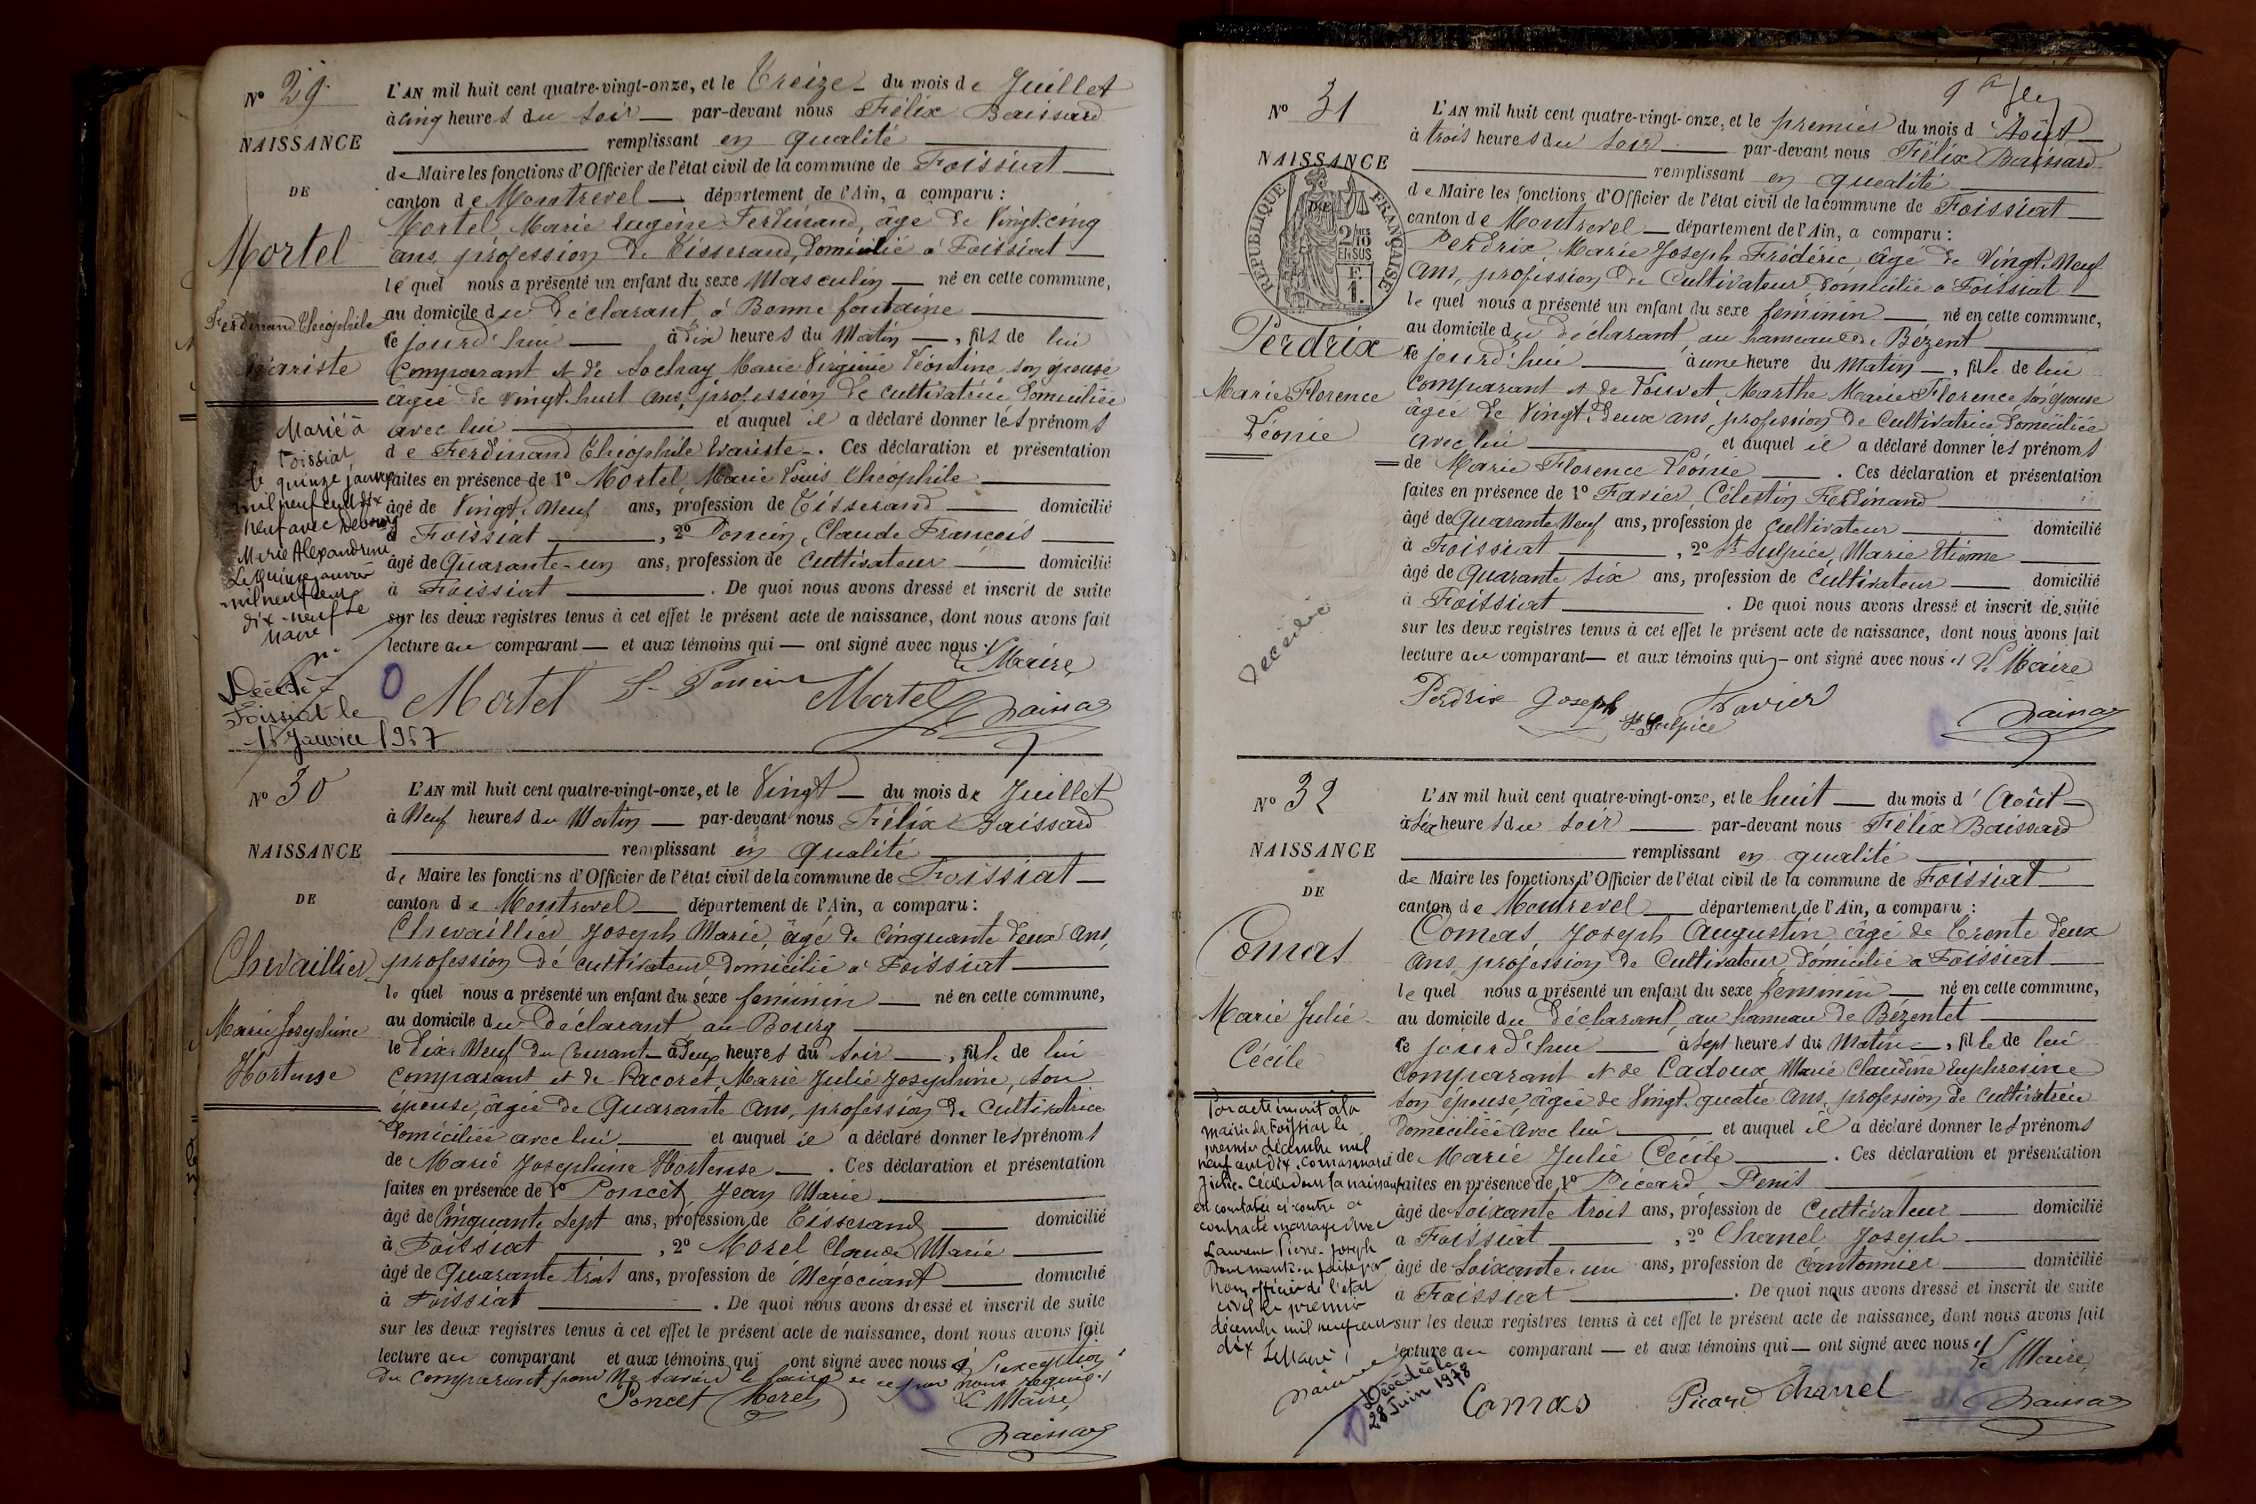 N° 29
NAISSANCE
DE
Mortel
Ferdinand Théophile
Evariste
Marié à
Foissiat
le quinze janvier
mil neuf cent dix
neuf avec
Marie Alexandrine
Le quinze janvier
mil neuf cent
dix-neuf Le
Maire
Décédé à
Foissiat le
Janvier 1957
L'AN mil huit cent quatre-vingt-onze, et le Treize du mois de Juillet
à cinq heures du soir par-devant nous Félix Baissard
remplissant en qualité
de Maire les fonctions d'Officier de l'état civil de la commune de Foissiat
canton de Montrevel département de l'Ain, a comparu :
Mortel Marie Eugène Ferdinand, âgé de Vingt-cinq
ans, profession de Tisserand, domicilié à Foissiat
lequel nous a présenté un enfant du sexe Masculin né en cette commune,
au domicile du Déclarant, à Bonne fontaine
ce jourd'hui à dix heures du Matin, fils de lui
comparant et de Sochay Marie Virginie Léontine son épouse
âgée de vingt-huit ans, profession de cultivatrice domiciliée
avec lui et auquel il a déclaré donner les prénoms
de Ferdinand Théophile Evariste. Ces déclaration et présentation
faites en présence de 1° Mortel, Marie Louis Théophile
âgé de Vingt-Neuf ans, profession de Tisserand domicilié
à Foissiat, 2° Poncin, Claude François
âgé de Quarante-un ans, profession de Cultivateur domicilié
à Foissiat. De quoi nous avons dressé et inscrit de suite
sur les deux registres tenus à cet effet le présent acte de naissance, dont nous avons fait
lecture au comparant et aux témoins qui ont signé avec nous
Le Maire,
Mortel Poncin Mortel
N° 30
NAISSANCE
DE
Chevaillier
Marie Josephine
Hortense
L'AN mil huit cent quatre-vingt-onze, et le Vingt du mois de Juillet
à Neuf heures du Matin par-devant nous Félix Baissard
remplissant en qualité
de Maire les fonctions d'Officier de l'état civil de la commune de Foissiat
canton de Montrevel département de l'Ain, a comparu :
Chevaillier Joseph Marie, âgé de Cinquante deux ans,
profession de cultivateur domicilié à Foissiat
lequel nous a présenté un enfant du sexe feminin né en cette commune,
au domicile du Déclarant, au Bourg
le Dix-Neuf du Courant à Deux heures du soir, fille de lui
comparant et de Pacoret Marie Julie Josephine, son
épouse, âgée de Quarante ans, profession de cultivatrice
domiciliée avec lui et auquel il a déclaré donner les prénoms
de Marie Josephine Hortense. Ces déclaration et présentation
faites en présence de 1° Poncet, Jean Marie
âgé de Cinquante Sept ans, profession de Tisserand domicilié
à Foissiat, 2° Morel Claude Marie
âgé de Quarante trois ans, profession de Négociant domicilié
à Foissiat. De quoi nous avons dressé et inscrit de suite
sur les deux registres tenus à cet effet le présent acte de naissance, dont nous avons fait
lecture au comparant et aux témoins qui ont signé avec nous à l'exception
du comparant pour ne savoir le faire de ce par nous requis.
Le Maire,
Poncet Morel
N° 31
NAISSANCE
DE
RÉPUBLIQUE FRANÇAISE
2/10 EN SUS
Perdrix
Marie Florence
Léonie
Décédée
L'AN mil huit cent quatre-vingt-onze, et le premier du mois d'Août
à trois heures du soir par-devant nous Félix Baissard
remplissant en qualité
de Maire les fonctions d'Officier de l'état civil de la commune de Foissiat
canton de Montrevel département de l'Ain, a comparu :
Perdrix, Marie Joseph Frédéric, âgé de Vingt-Neuf
ans, profession de Cultivateur domicilié à Foissiat
lequel nous a présenté un enfant du sexe feminin né en cette commune,
au domicile du déclarant, au hameau de Bézent
ce jourd'hui à une heure du Matin, fille de lui
comparant et de Vouvet, Marthe Marie Florence son épouse
âgée de Vingt-deux ans, profession de Cultivatrice domiciliée
avec lui et auquel il a déclaré donner les prénoms
de Marie Florence Léonie. Ces déclaration et présentation
faites en présence de 1° Favier Célestin Ferdinand
âgé de Quarante Neuf ans, profession de cultivateur domicilié
à Foissiat, 2° St Sulpice, Marie Etienne
âgé de Quarante six ans, profession de Cultivateur domicilié
à Foissiat. De quoi nous avons dressé et inscrit de suite
sur les deux registres tenus à cet effet le présent acte de naissance, dont nous avons fait
lecture au comparant et aux témoins qui ont signé avec nous
Le Maire
Perdrix Joseph St Sulpice Favier
N° 32
NAISSANCE
DE
Comas
Marie Julie
Cécile
Par acte inscrit à la
mairie de Foissiat le
premier décembre mil
neuf cent dix, Comas Marie
Julie Cécile dont la naissance
est constatée ci-contre a
contracté mariage avec
Laurent Pierre-Joseph
Dont mention faite par
nous officier de l'état
civil le premier
décembre mil neuf cent
dix Le Maire,
Décédée le
28 Juin 1978
L'AN mil huit cent quatre-vingt-onze, et le huit du mois d'Août
à six heures du soir par-devant nous Félix Baissard
remplissant en qualité
de Maire les fonctions d'Officier de l'état civil de la commune de Foissiat
canton de Montrevel département de l'Ain, a comparu :
Comas Joseph Augustin âgé de Trente deux
ans, profession de Cultivateur, domicilié à Foissiat
lequel nous a présenté un enfant du sexe feminin né en cette commune,
au domicile du déclarant, au hameau de Bézentet
ce jourd'hui à sept heures du Matin, fille de lui
comparant et de Cadoux Marie Claudine Euphrosine
son épouse, âgée de Vingt-quatre ans, profession de Cultivatrice
domiciliée avec lui et auquel il a déclaré donner les prénoms
de Marie Julie Cécile. Ces déclaration et présentation
faites en présence de 1° Picard Denis
âgé de soixante trois ans, profession de Cultivateur domicilié
à Foissiat, 2° Charnel Joseph
âgé de Soixante-un ans, profession de cantonnier domicilié
à Foissiat. De quoi nous avons dressé et inscrit de suite
sur les deux registres tenus à cet effet le présent acte de naissance, dont nous avons fait
lecture au comparant et aux témoins qui ont signé avec nous
Le Maire,
Comas Picard Charnel